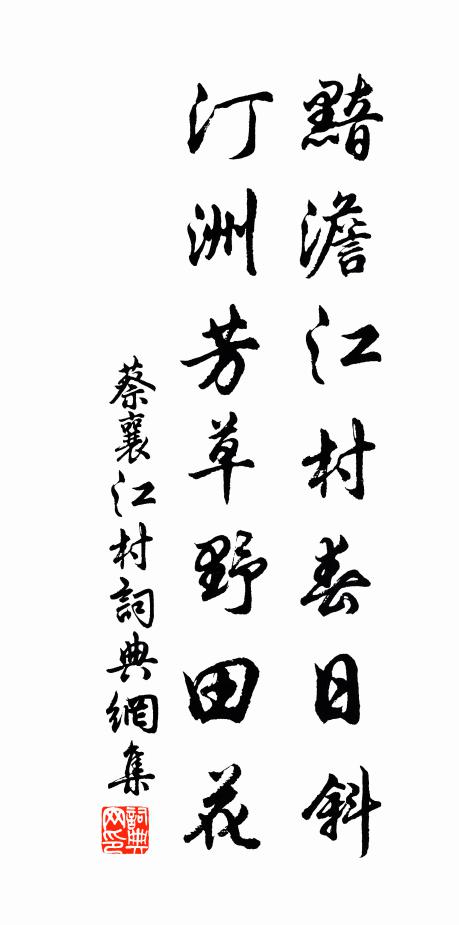 黯澹江村春日斜
汀洲芳草野田花
蔡襄江村詞典網集
詞典网印